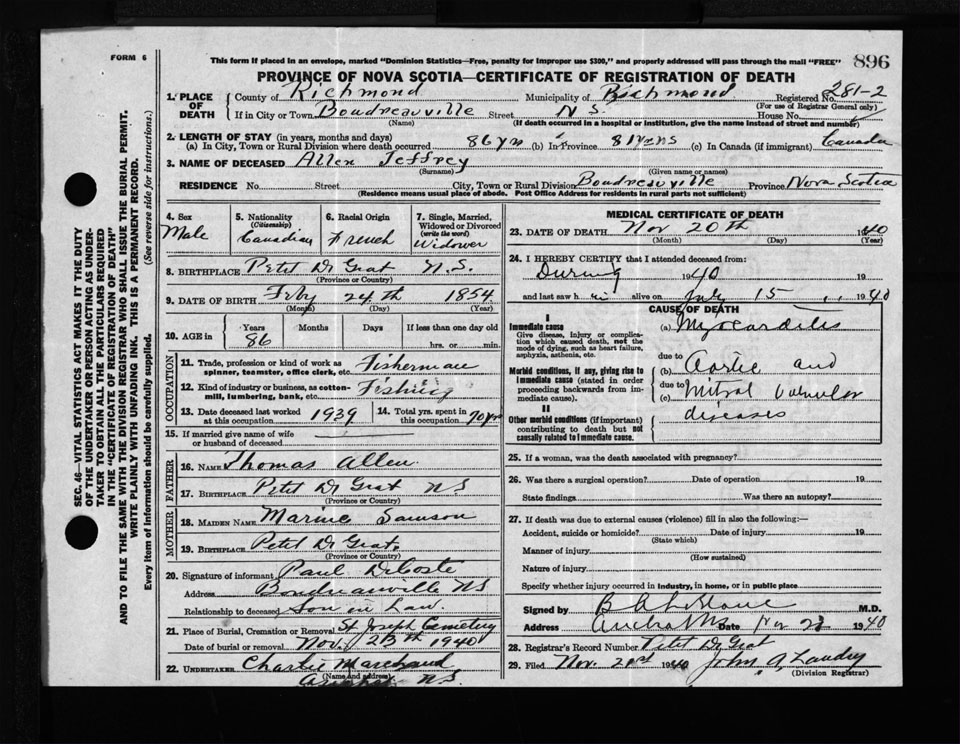 FORM 6
This form if placed in an envelope, marked "Dominion Statistics—Free, penalty for improper use $300," and properly addressed will pass through the mail "FREE"
896
PROVINCE OF NOVA SCOTIA—CERTIFICATE OF REGISTRATION OF DEATH
1. PLACE OF DEATH
County of Richmond Municipality of Richmond Registered No. 281-2
(For use of Registrar General only)
If in City or Town Boudreauville Street N S House No.
(Name) (If death occurred in a hospital or institution, give the name instead of street and number)
2. LENGTH OF STAY (in years, months and days)
(a) In City, Town or Rural Division where death occurred 86 yrs (b) in Province 81 yrs (c) In Canada (if immigrant) Canada
3. NAME OF DECEASED Allen Jeffrey
(Surname) (Given name or names)
RESIDENCE No. Street City, Town or Rural Division Boudreauville Province Nova Scotia
(Residence means usual place of abode. Post Office Address for residents in rural parts not sufficient)
4. Sex
Male
5. Nationality
(Citizenship)
Canadian
6. Racial Origin
French
7. Single, Married, Widowed or Divorced
(write the word)
Widower
8. BIRTHPLACE Petit De Grat N.S.
(Province or Country)
9. DATE OF BIRTH Feby 24th 1854
(Month) (Day) (Year)
10. AGE in
Years
86
Months
Days
If less than one day old
hrs. or min.
OCCUPATION
11. Trade, profession or kind of work as spinner, teamster, office clerk, etc. Fisherman
12. Kind of industry or business, as cotton-mill, lumbering, bank, etc. Fishing
13. Date deceased last worked at this occupation 1939
14. Total yrs. spent in this occupation 70 yrs
15. If married give name of wife or husband of deceased
FATHER
16. NAME Thomas Allen
17. BIRTHPLACE Petit De Grat NS
(Province or Country)
MOTHER
18. MAIDEN NAME Marine Samson
19. BIRTHPLACE Petit De Grat,
(Province or Country)
20. Signature of informant Paul DeCoste
Address Boudreauville NS
Relationship to deceased Son in Law.
21. Place of Burial, Cremation or Removal St Joseph Cemetery
Date of burial or removal Nov. 23th 1940
22. UNDERTAKER Charlie Marchand
(Name and address)
N.S.
MEDICAL CERTIFICATE OF DEATH
23. DATE OF DEATH Nov 20th 1940
(Month) (Day) (Year)
24. I HEREBY CERTIFY that I attended deceased from:
During 1940 19
and last saw h im alive on July 15 1940
CAUSE OF DEATH
I
Immediate cause
Give disease, injury or complication which caused death, not the mode of dying, such as heart failure, asphyxia, asthenia, etc.
(a) Myocarditis
due to
Morbid conditions, if any, giving rise to immediate cause (stated in order proceeding backwards from immediate cause).
(b) Aortic and
due to
(c) Mitral valvular
diseases
II
Other morbid conditions (if important) contributing to death but not causally related to immediate cause.
25. If a woman, was the death associated with pregnancy?
26. Was there a surgical operation? Date of operation 19
State findings Was there an autopsy?
27. If death was due to external causes (violence) fill in also the following:—
Accident, suicide or homicide? Date of injury 19
(State which)
Manner of injury
(How sustained)
Nature of injury
Specify whether injury occurred in industry, in home, or in public place
Signed by M.D.
Address Arichat NS Date Nov 23 1940
28. Registrar's Record Number Petit De Grat
29. Filed Nov. 1940 John A Landry
(Division Registrar)
SEC. 46—VITAL STATISTICS ACT MAKES IT THE DUTY
OF THE UNDERTAKER OR PERSON ACTING AS UNDER-
TAKER TO OBTAIN ALL THE PARTICULARS REQUIRED
IN THE "CERTIFICATE OF REGISTRATION OF DEATH"
AND TO FILE THE SAME WITH THE DIVISION REGISTRAR WHO SHALL ISSUE THE BURIAL PERMIT.
WRITE PLAINLY WITH UNFADING INK. THIS IS A PERMANENT RECORD.
Every item of information should be carefully supplied. (See reverse side for instructions.)